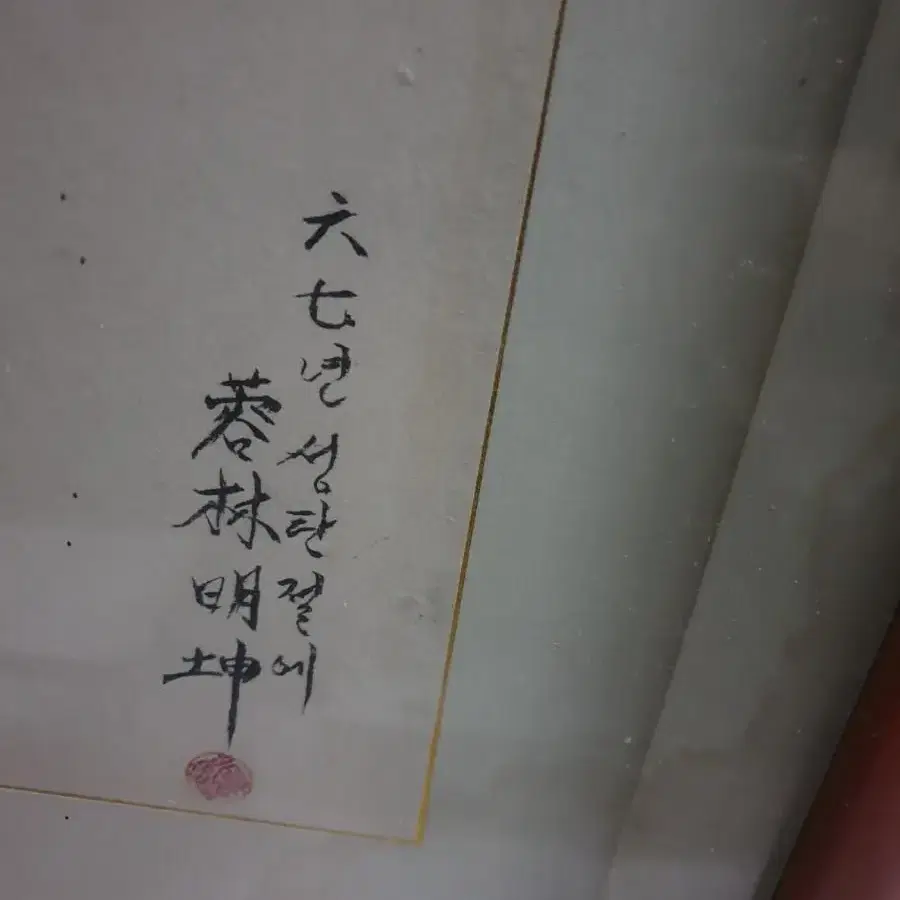 六七년 성탄절에
蓉林明坤